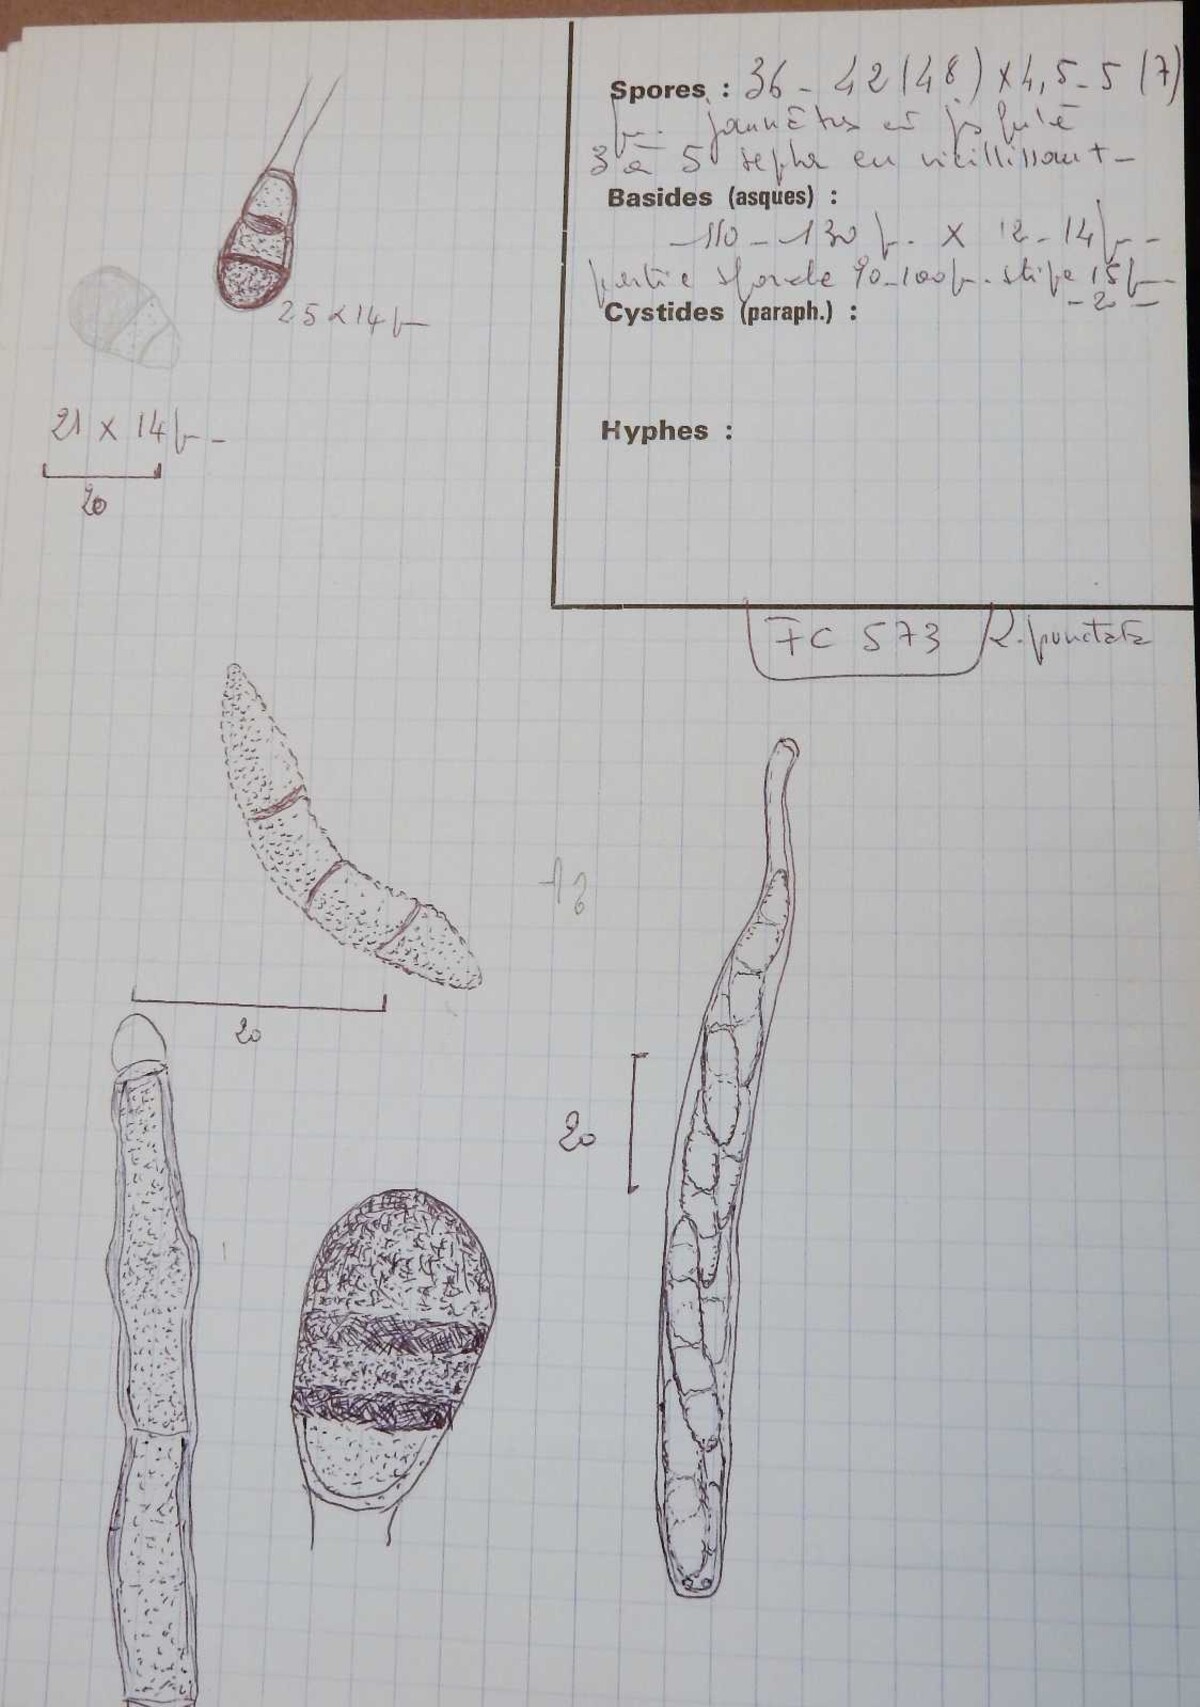 Spores : 36 - 42 (48) x 4,5 - 5 (7)
µ. jaunâtres et
3 à 5 septa en vieillissant -
Basides (asques) :
110 - 130 µ. x 12 - 14 µ -
partie sporale 90-100 µ. stipe 15 µ
- 20 -
Cystides (paraph.) :
Hyphes :
25 x 14 µ
21 x 14 µ -
20
FC 573
R. punctata
20
20